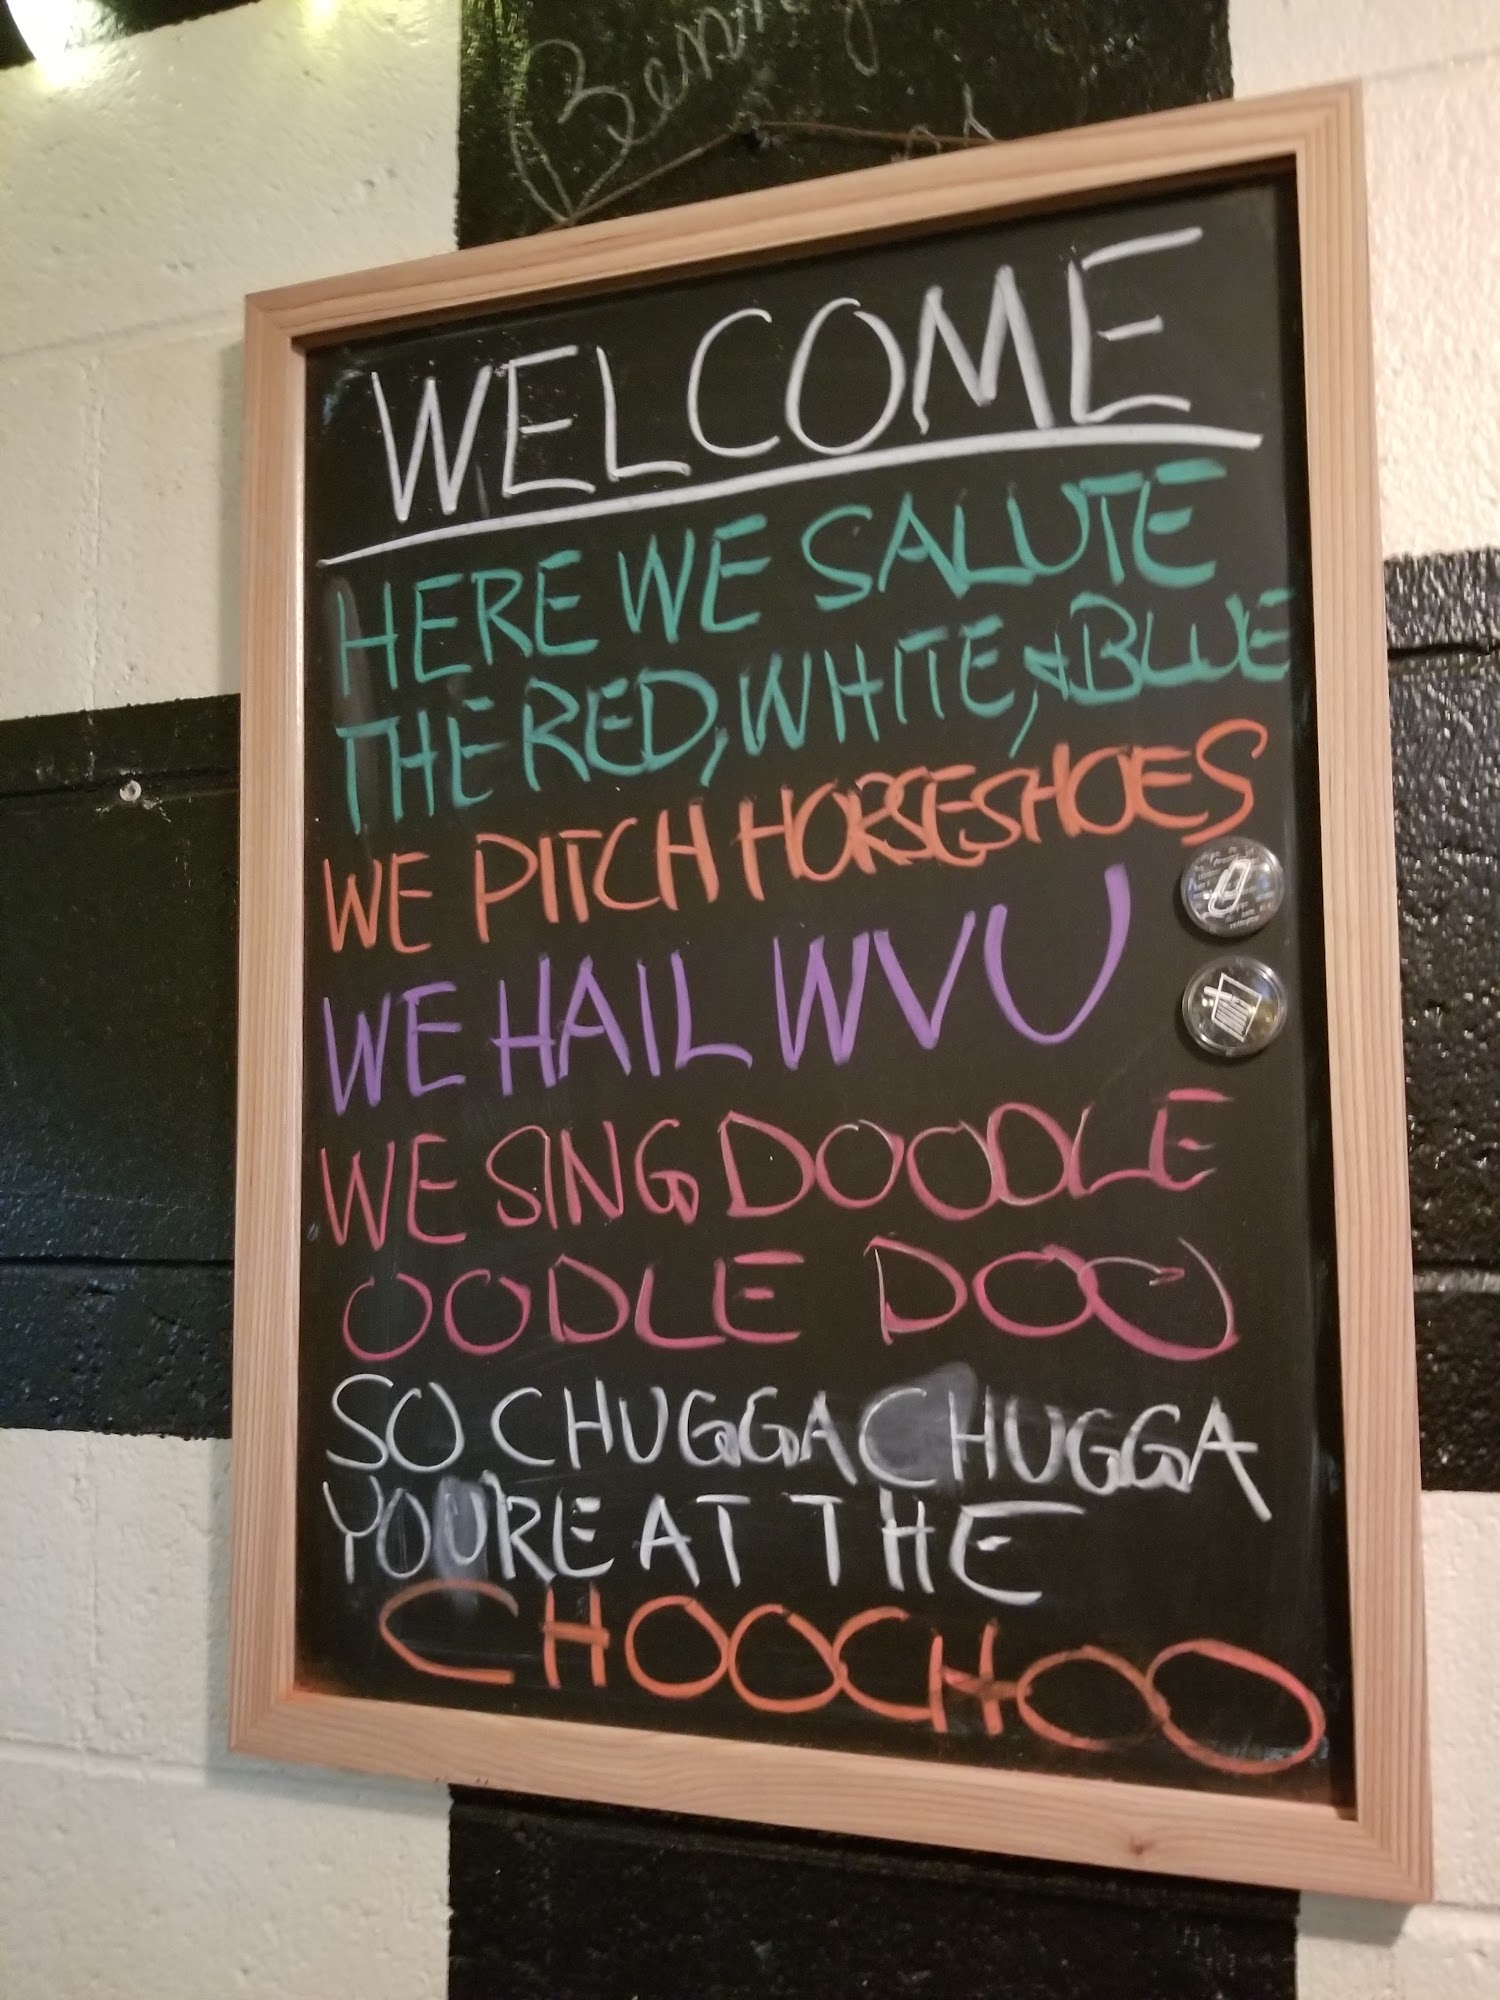 WELCOME
HERE WE SALUTE
THE RED, WHITE, & BLUE
WE PITCH HORSESHOES
WE HAIL WVU
WE SING DOODLE
OODLE DOO
SO CHUGGA CHUGGA
YOURE AT THE
CHOOCHOO